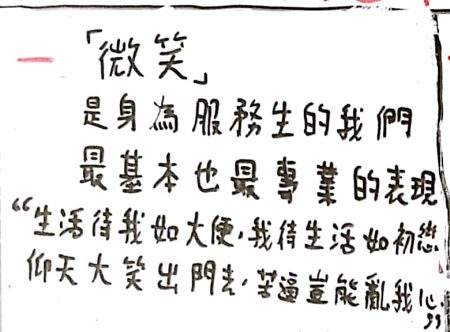 「微笑」
是身為服務生的我們
最基本也最專業的表現
“生活待我如大便，我待生活如初戀
仰天大笑出門去，苦逼豈能亂我心”